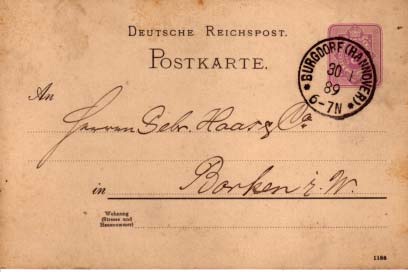 DEUTSCHE REICHSPOST.
POSTKARTE.
* BURGDORF (HANNOVER) *
30 1
89
6-7N
An
Herren Gebr. Haas & Co
in Borken i. W.
Wohnung
(Strasse und
Hausnummer)
1188